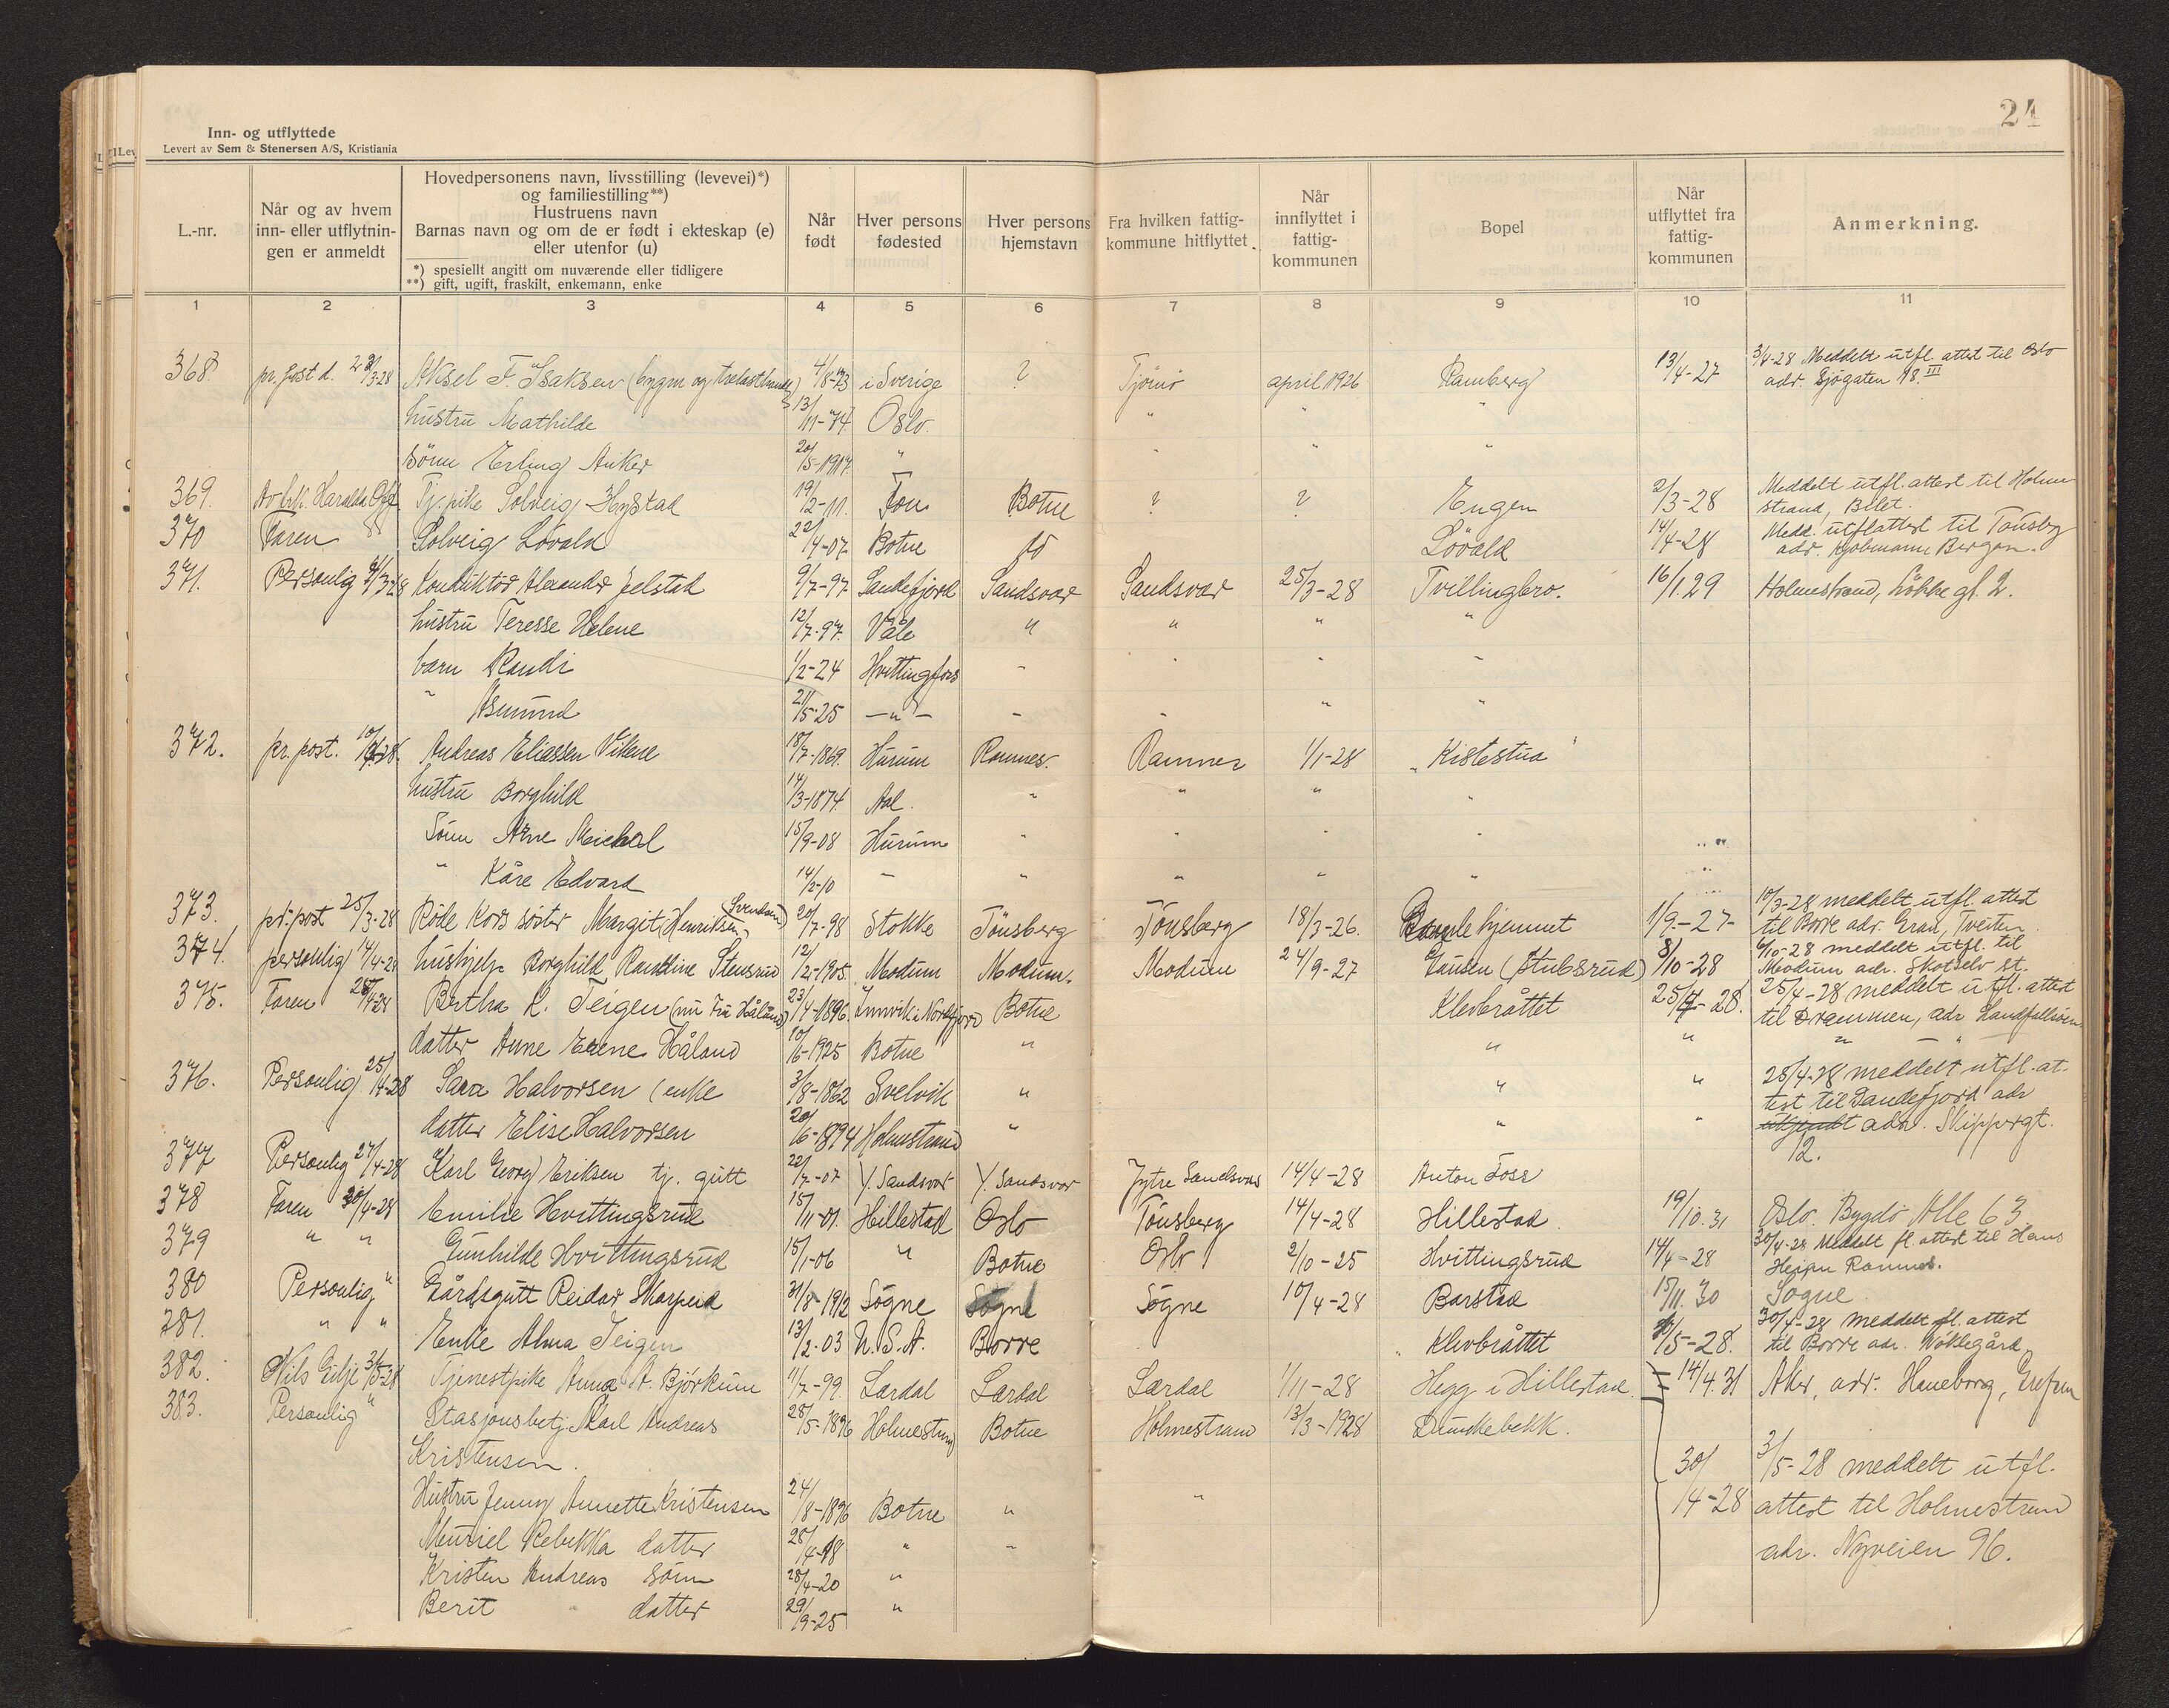 24
Inn- og utflyttede
Levert av Sem & Stenersen A/S, Kristiania
L.-nr.
Når og av hvem inn- eller utflytnin- gen er anmeldt
Hovedpersonens navn, livsstilling (levevei)*)
og familiestilling**)
Hustruens navn
Barnas navn og om de er født i ekteskap (e)
eller utenfor (u)
*) spesiellt angitt om nuværende eller tidligere
**) gift, ugift, fraskilt, enkemann, enke
Når født
Hver persons fødested
Hver persons hjemstavn
Fra hvilken fattig- kommune hitflyttet
Når innflyttet i fattig- kommunen
Bopel
Når utflyttet fra fattig- kommunen
Anmerkning.
1 2 3 4 5 6 7 8 9 10 11
368. pr. post d. Aksel F. Isaksen (bygm og trelasthandl) 4/8-73 i Sverige ? Tjömö april 1926 Ramberg 13/4-27 3/4-28 Meddelt utfl. attest til Oslo
adr. Sjögaten 18. III
hustru Mathilde 13/11-74 Oslo. " "
sönn Erling Anker 20/5-1917. " " " "
369. Tj. pike Solveig Hystad 19/2-11. Fon Botne ? ? Engen 2/3-28 Meddelt utfl. attest til Holme
strand, Bilet.
370 Faren Solveig Lövald 22/4-07 Botne do Lövald 14/4-28 Medd. utflattest til Tønsbg
adr. Kjöbmann Bergan.
371. Personlig Konduktör Alexander Jelstad 9/7-97. Sandefjord Sandsvær Sandsvær 25/3-28 Tvillingbro. 16/1 29 Holmestrand, Løkke gt. 2.
hustru Teresse Helene 12/7-97. Våle " " " "
barn Randi 1/2-24 Hvittingfoss " " " "
" Asmund 21/5-25 — " — " " " "
372. pr. post. Andreas Eliassen Vikene 18/7-1869. Hurum Ramnes. Ramnes 1/1-28 "Kistestua"
hustru Borghild 14/3-1874. Aal. " " " "
Sönn Arne Michael 15/9-08 Hurum " " " "
" Kåre Edvard 14/2-10 " " " " "
373. pr. post 25/3-28 Röde Kors söster Margit (Henriksen) Svendsen 20/7-98 Stokke Tönsberg Tönsberg 18/3-26. Gamlehjemmet 1/9-27 10/3-28 meddelt utfl. attest
til Borre adr. Gran, Tveiten
374. personlig 14/4-28 hushjelp Borghild Randine Stensrud 12/12-1905. Modum Modum. Modum 24/9-27 Gausen (Stubsrud) 8/10-28 6/10-28 meddelt utfl. til
Modum adr. Skotselv st.
375. Faren Bertha K. Teigen (nu fru Håland) 23/4-1896. Innvik i Nordfjord Botne Klevbråttet 25/4-28. 25/4-28 meddelt utfl. attest
til Drammen, adr Landfallsöen
datter Anne Erene Håland 10/6-1925 Botne " " " " — "
376. Personlig 25/4-28 Sara Halvorsen (enke 3/8-1862 Svelvik " " " 28/4-28 meddelt utfl. at-
test til Sandefjord adr
datter Elise Halvorsen 20/6-1894 Holmestrand " " " ukjendt adr. Skippergt.
12.
377 Personlig 27/4-28 Karl Georg Eriksen tj. gutt 22/7-07 Y. Sandsvær Y. Sandsvær Jytre Sandsvær 14/4-28 Anton Foss
378 Faren 30/4-28 Emilie Hvittingsrud 15/11-01. Hillestad Oslo Tönsberg 14/4-28 Hillestad. 19/10.31 Oslo. Bygdö Alle 63
379 " " Gunhilde Hvittingsrud 15/1-06 " Botne Oslo 2/10-25 Hvittingsrud 14/4-28 30/4-28 Meddelt fl. attest til Hans
Ramnes.
380 Personlig " Gårdsgutt Reidar Skarpeid 31/8-1912 Sögne Sögne Sögne 10/4-28 Barstad 15/11.30 Sogne
281. " " Enke Alma Teigen 13/2.03 U.S.A. Borre Klevbråttet /5-28. 30/4-28 meddelt fl. attest
til Borre adr. Woklegård.
382. Nils Gilje 3/5-28 Tjenestpike Anna A. Björkum 11/7-99. Lærdal Lærdal Lærdal 1/11-28 Hegg i Hillestad. 14/4.31 Aker, adr. Haneborg, Grefsen
383. Personlig " Stasjonsbetj. Karl Andreas 28/5-1896 Holmestrand Botne Holmestrand 13/3-1928 Dunskebekk.
Kristensen. 30/4-28 3/5-28 meddelt utfl.
Hustru Jenny Annette Kristensen 24/8-1896 Botne " " attest til Holmestrand
Muriel Rebekka datter 28/4-18 " " adr. Nyveien 96.
Kristen Andreas sönn 28/4-20 "
Berit datter 29/9-25 "